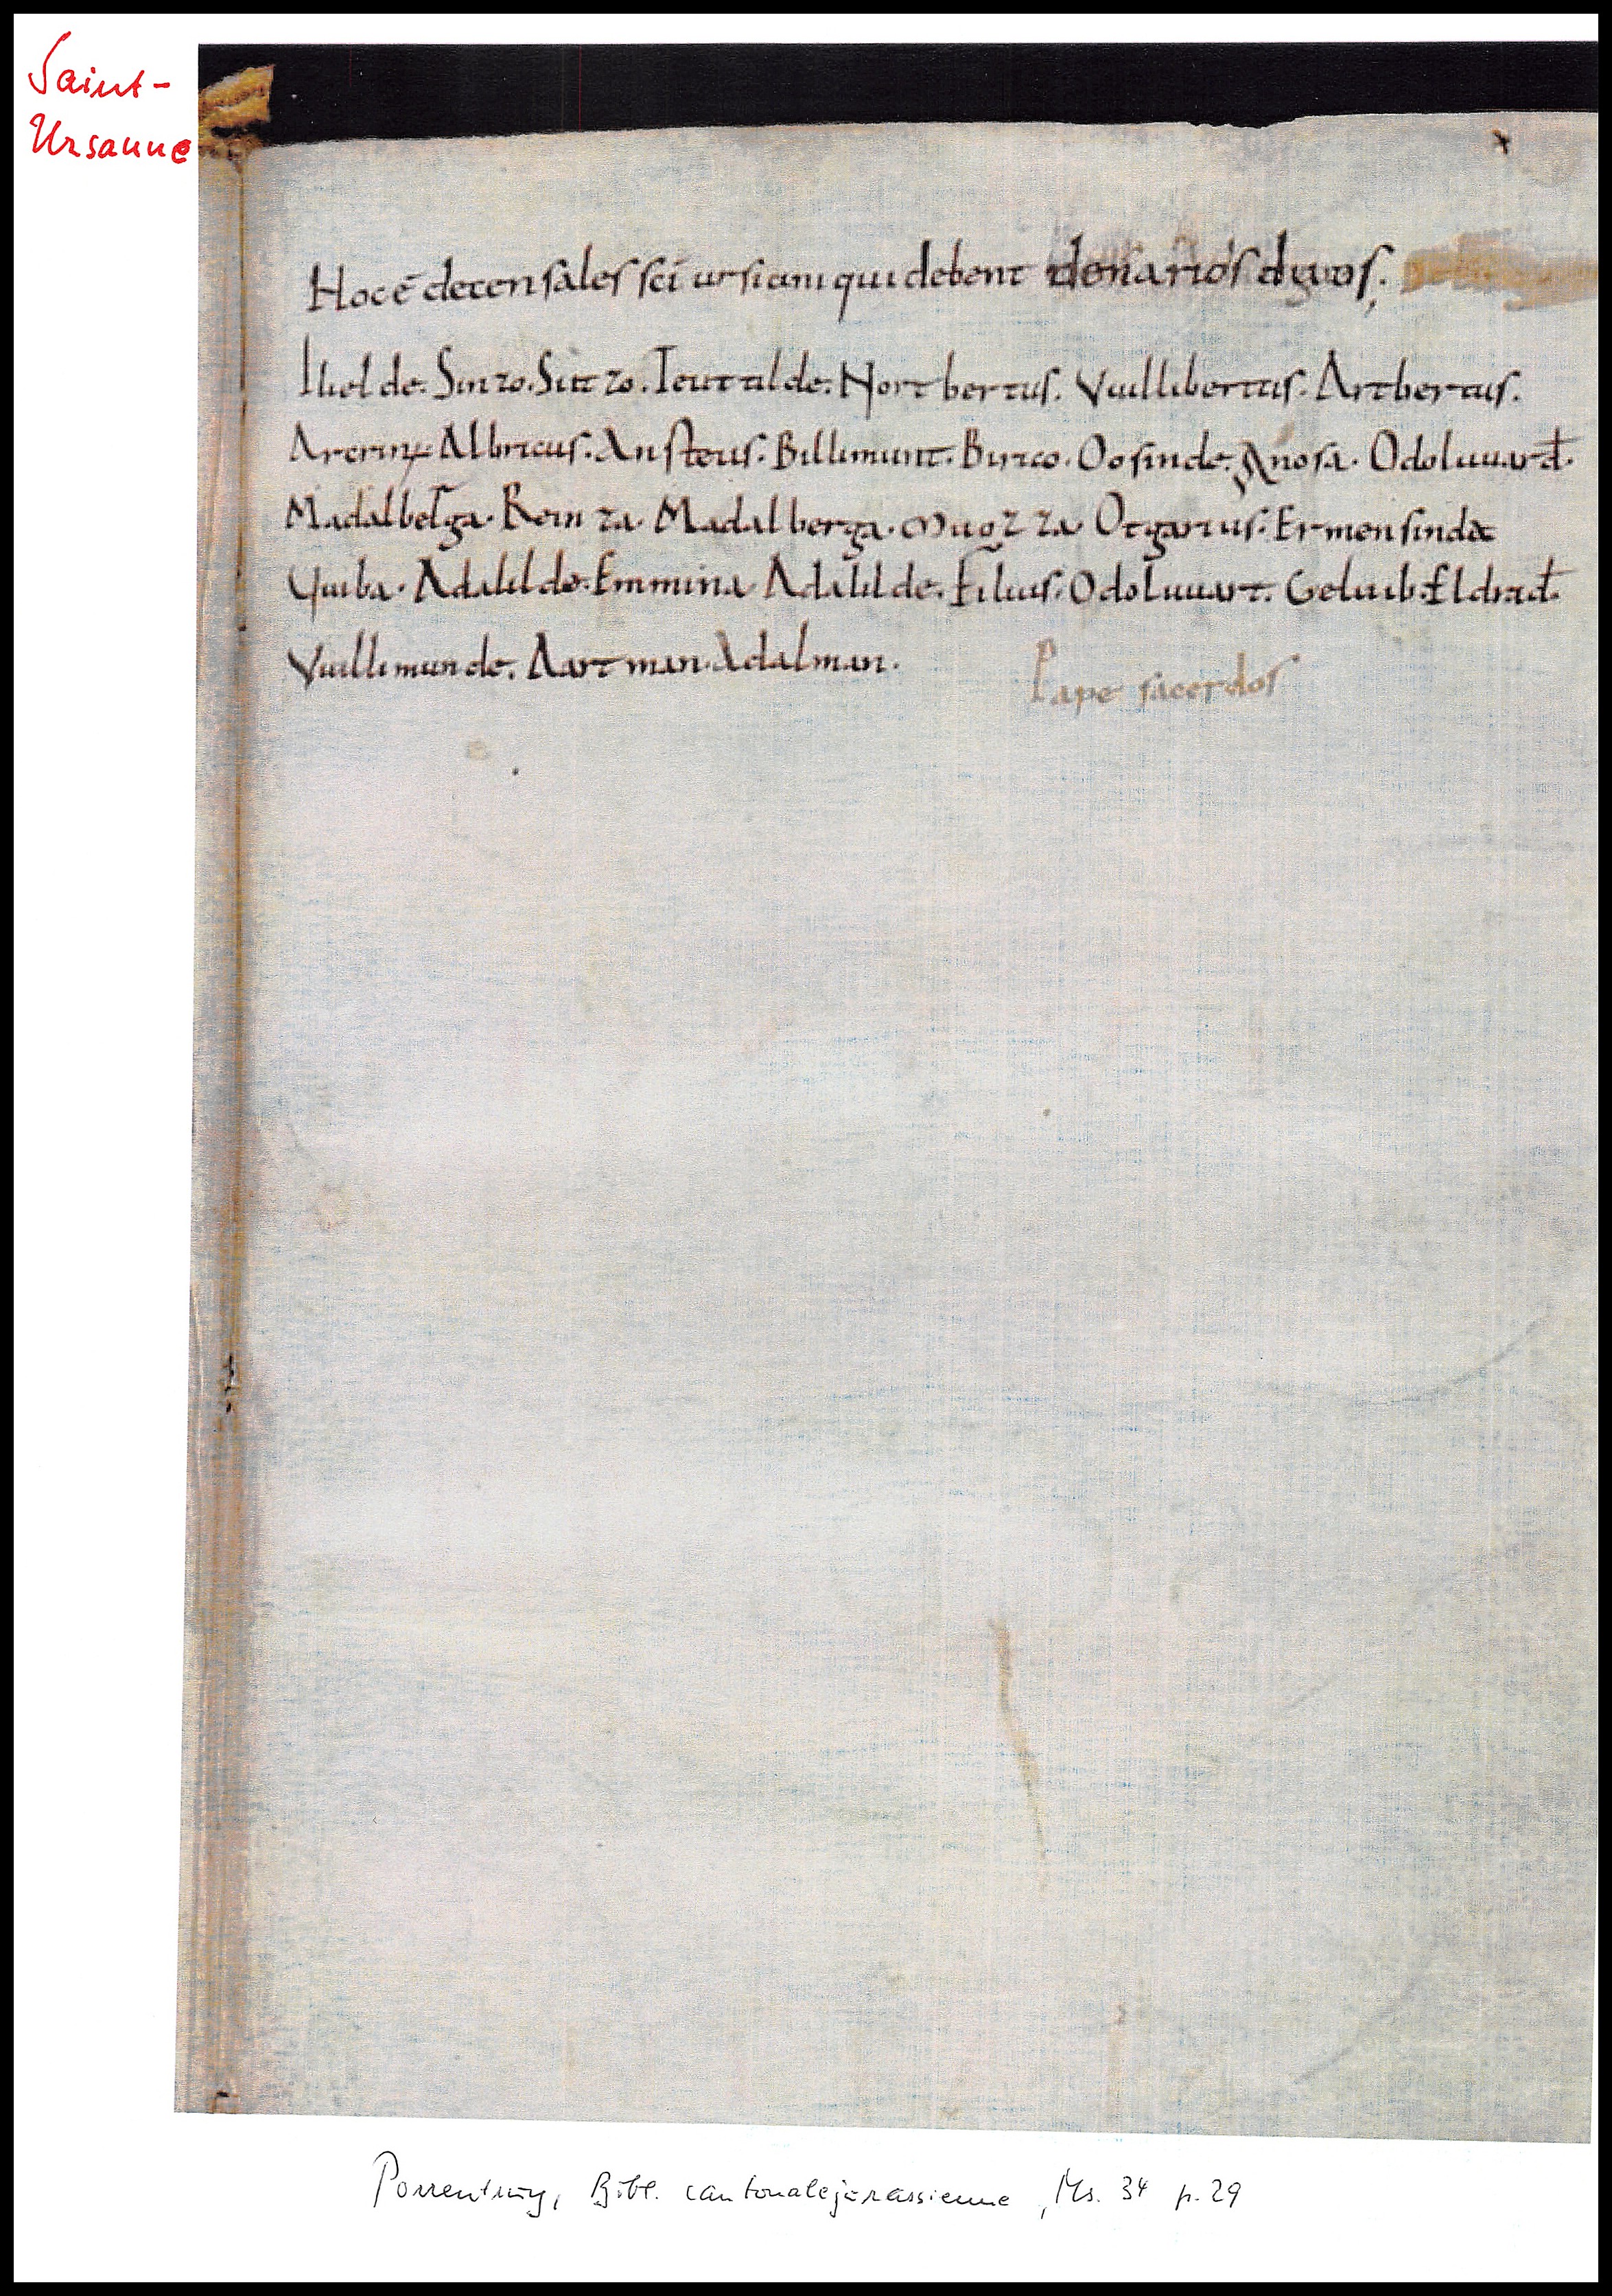 Saint-
Ursanne
Hoc ē decensales sc̄i ursicini qui debent denarios duos.
Iliel de. Sinzo. Sitzo. Teutilde. Nortbertus. Vuillibertus. Artbertus.
Albricus. Ansteus. Billimunt. Birico. Oosinde. Anosa. Odoluuard.
Madalbelga. Reinza. Madalberga. Muozza. Otgarius. Ermensinda
Adalilde. Emmina. Adalilde. Filius. Odoluuart. Geluib. Eldrad.
Vuillimunde. Aartman. Adalman.
Pape sacerdos
Porrentruy, Bibl. cantonale jurassienne, Ms. 34 p. 29